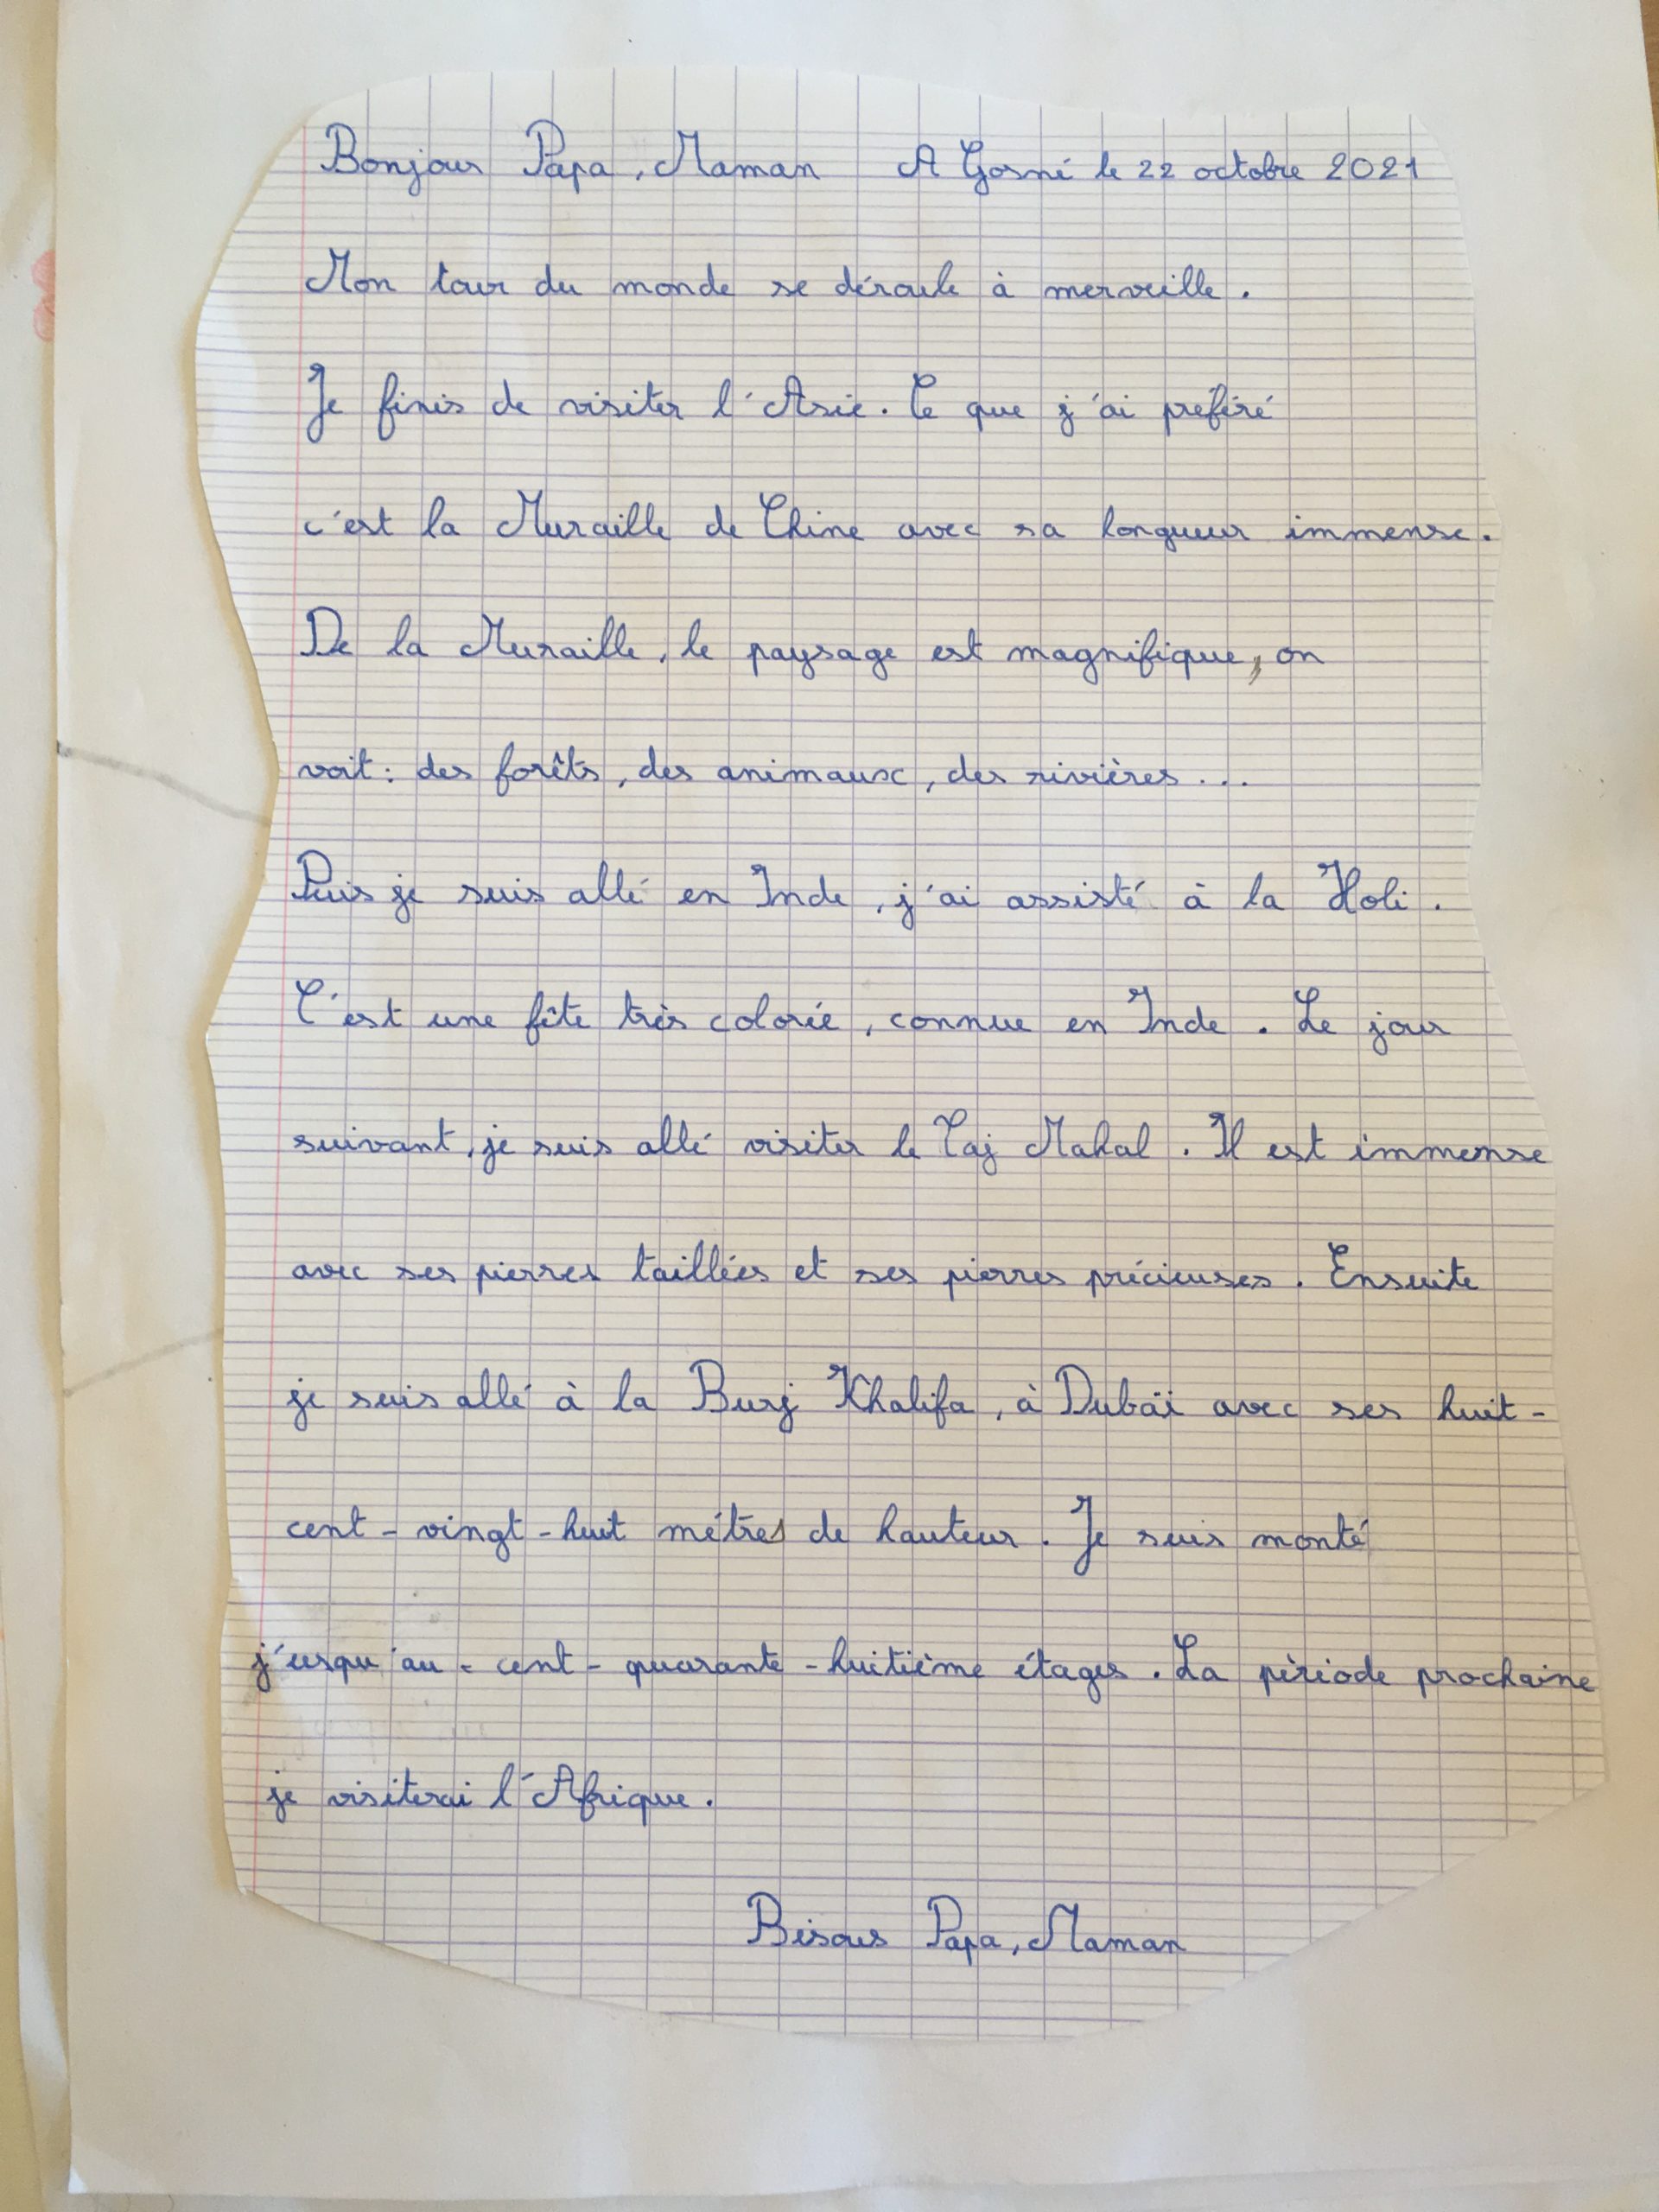 Bonjour Papa, Maman A Gosné le 22 octobre 2021
Mon tour du monde se déroule à merveille.
Je finis de visiter l'Asie. Ce que j'ai préféré
c'est la Muraille de Chine avec sa longueur immense.
De la Muraille, le paysage est magnifique, on
voit : des forêts, des animaux, des rivières...
Puis je suis allé en Inde, j'ai assisté à la Holi.
C'est une fête très colorée, connue en Inde. Le jour
suivant, je suis allé visiter le Taj Mahal. Il est immense
avec ses pierres taillées et ses pierres précieuses. Ensuite
je suis allé à la Burj Khalifa, à Dubaï avec ses huit-
cent-vingt-huit métres de hauteur. Je suis monté
j'usqu'au-cent-quarante-huitième étages. La période prochaine
je visiterai l'Afrique.
Bisous Papa, Maman